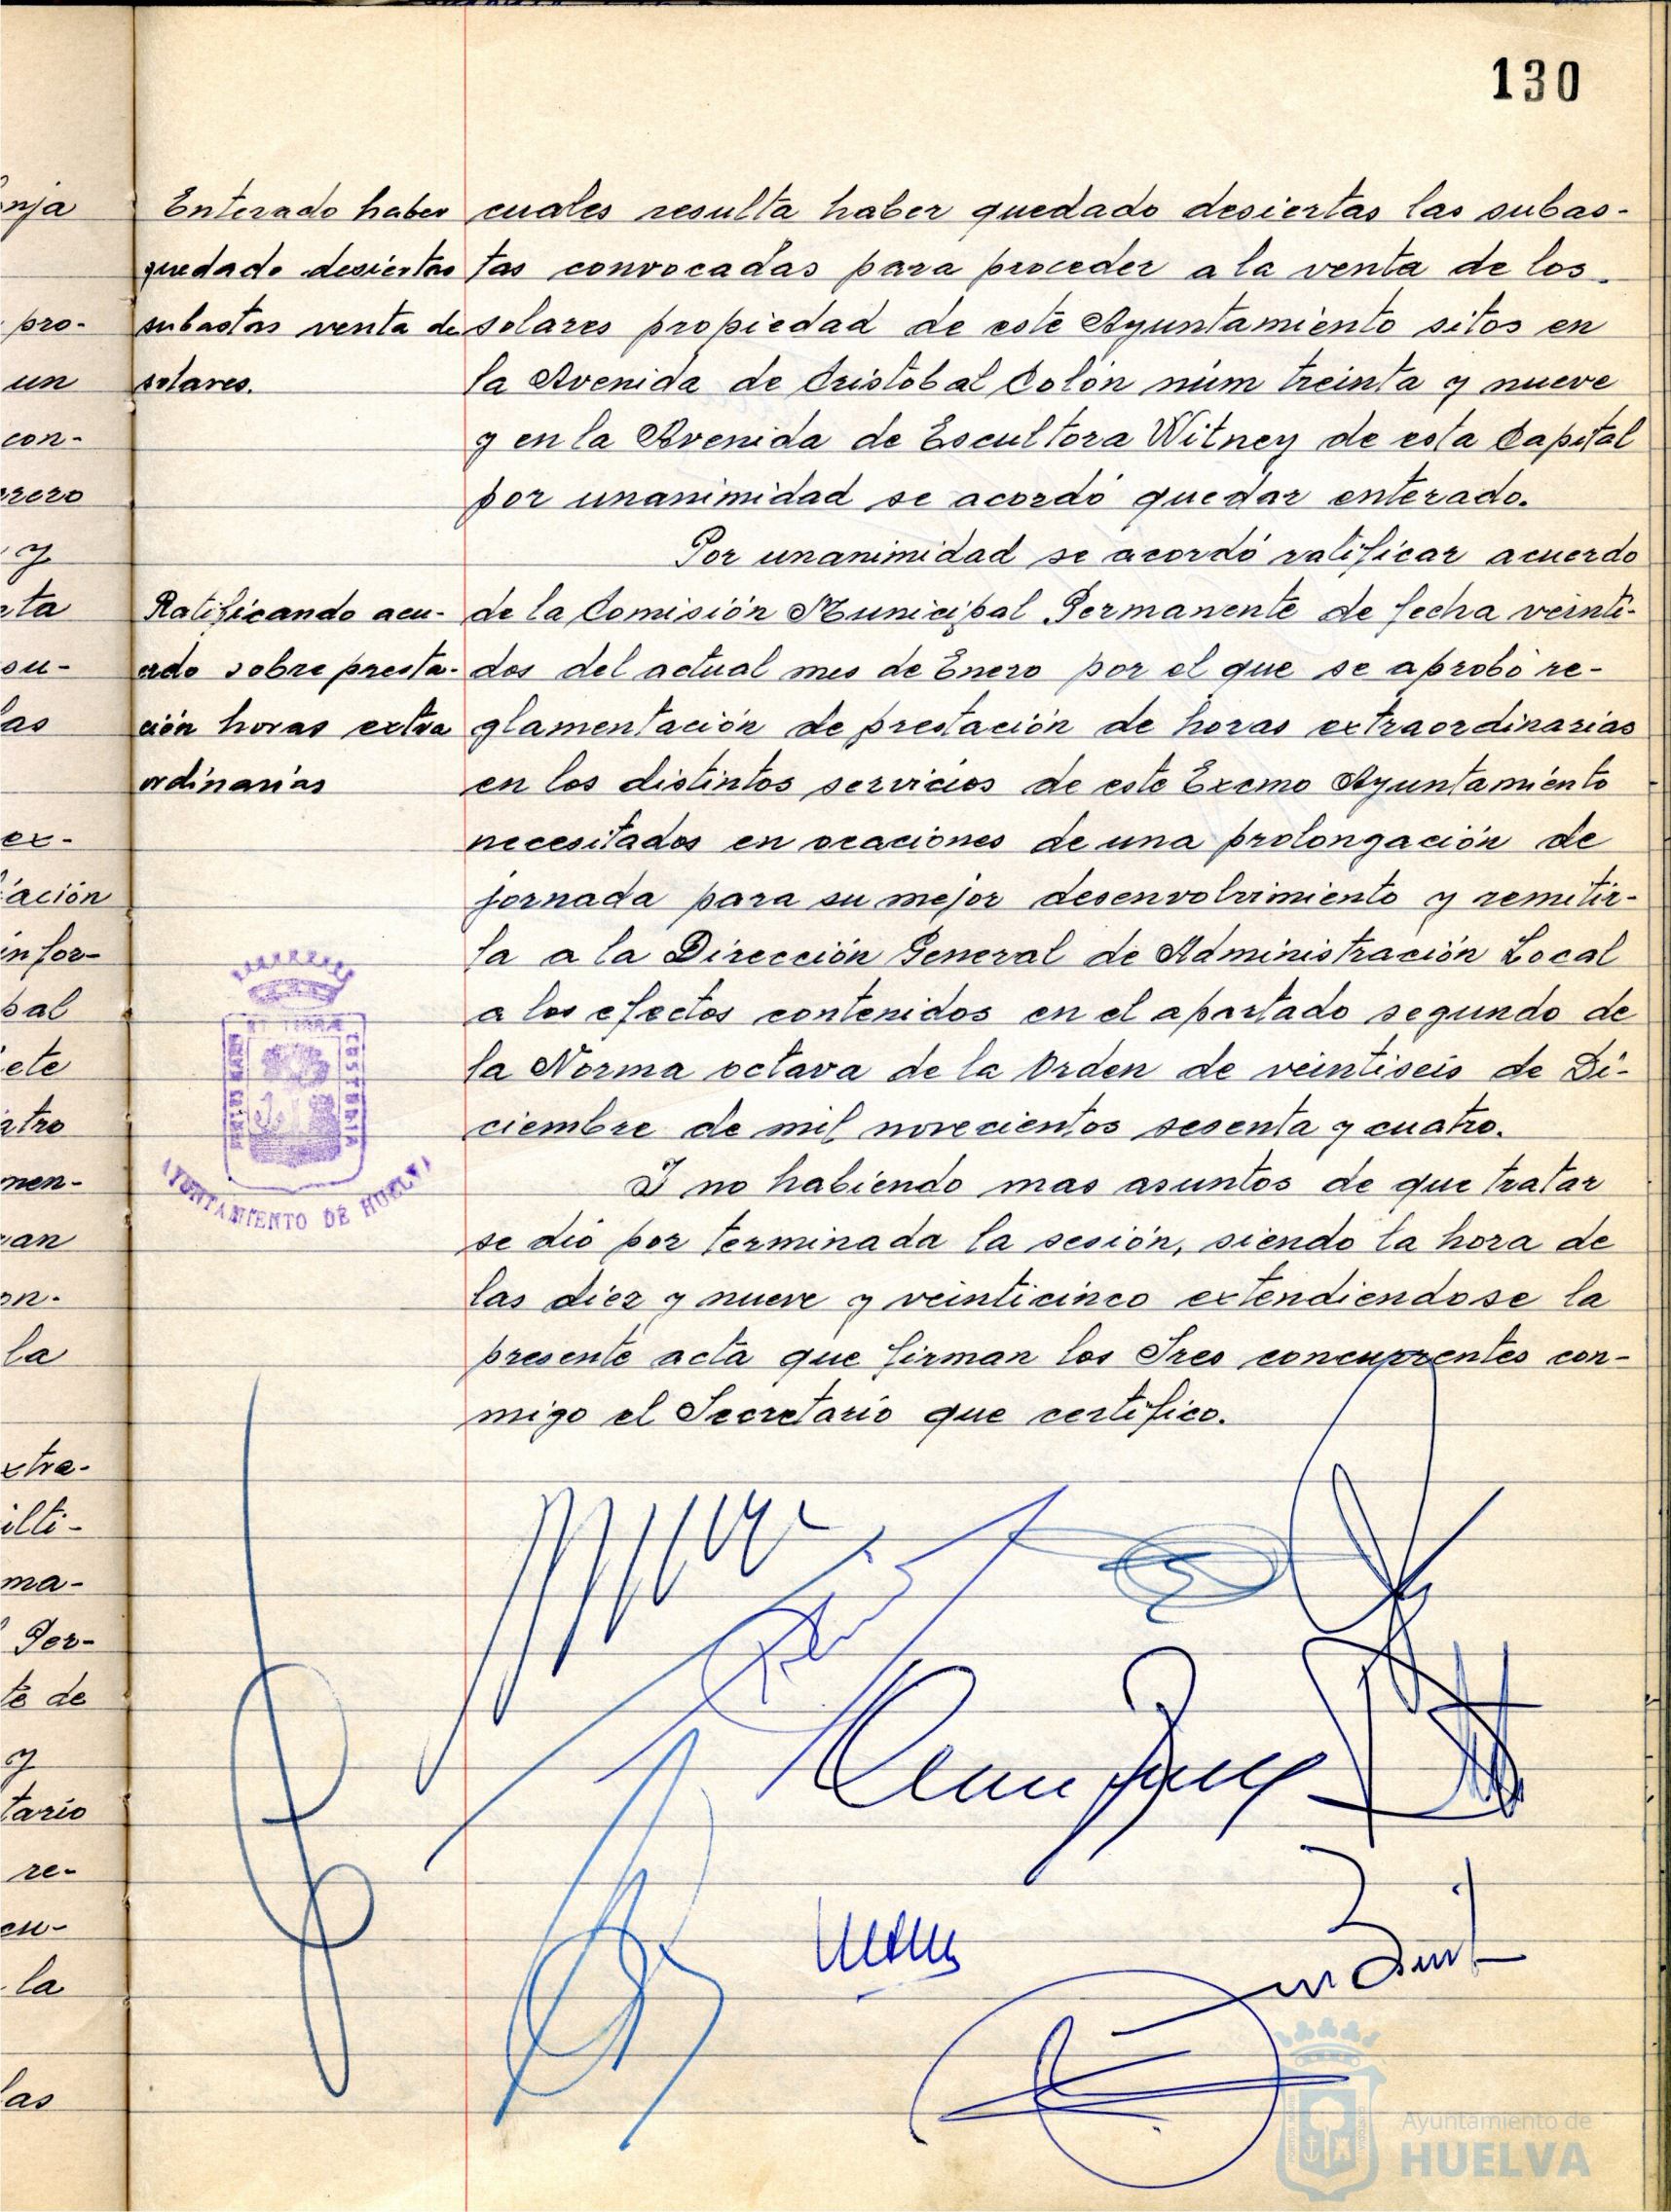 130
Enterado haber
quedado desiertas
subastas venta de
solares.
cuales resulta haber quedado desiertas las subas-
tas convocadas para proceder a la venta de los
solares propiedad de este Ayuntamiento sitos en
la Avenida de Cristobal Colón núm treinta y nueve
y en la Avenida de Escultora Witney de esta Capital
por unanimidad se acordó quedar enterado.
Por unanimidad se acordó ratificar acuerdo
Ratificando acu-
erdo sobre presta-
ción horas extra
ordinarias
de la Comisión Municipal Permanente de fecha veinti-
dos del actual mes de Enero por el que se aprobó re-
glamentación de prestación de horas extraordinarias
en los distintos servicios de este Excmo Ayuntamiento
necesitados en ocaciones de una prolongación de
jornada para su mejor desenvolvimiento y remitir-
la a la Dirección General de Administración Local
a los efectos contenidos en el apartado segundo de
la Norma octava de la Orden de veintiseis de Di-
ciembre de mil novecientos sesenta y cuatro.
Y no habiendo mas asuntos de que tratar
se dió por terminada la sesión, siendo la hora de
las diez y nueve y veinticinco extendiendose la
presente acta que firman los Sres concurrentes con-
migo el Secretario que certifico.
AYUNTAMIENTO DE HUELVA
nja
pro-
un
con-
rero
y
ta
su-
as
ex-
ación
infor-
pal
ete
atro
men-
an
on-
la
xtra-
ilti-
ma-
Per-
te de
y
tario
re-
cu-
la
las
Ayuntamiento de
HUELVA